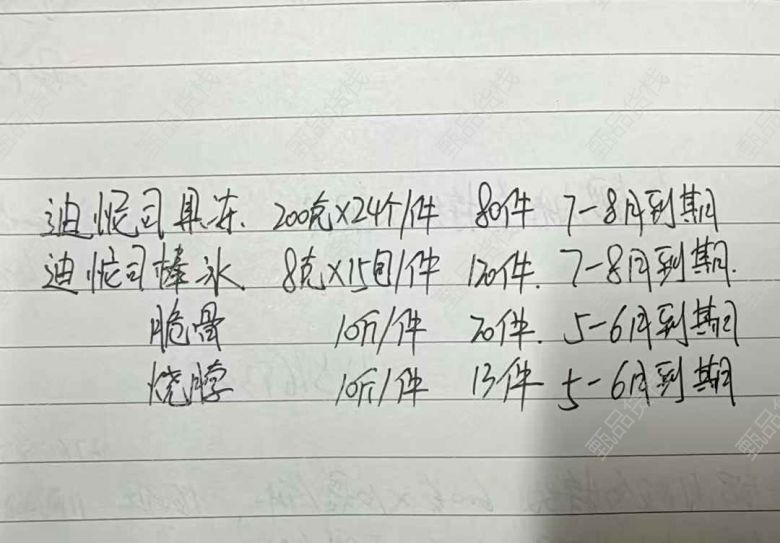 迪悦司果冻. 200克×24个/件 80件 7-8月到期
迪悦司棒冰 8克×15包/件 120件. 7-8月到期.
脆骨 10斤/件 20件. 5-6月到期
烧脖 10斤/件 13件 5-6月到期
甄品货栈